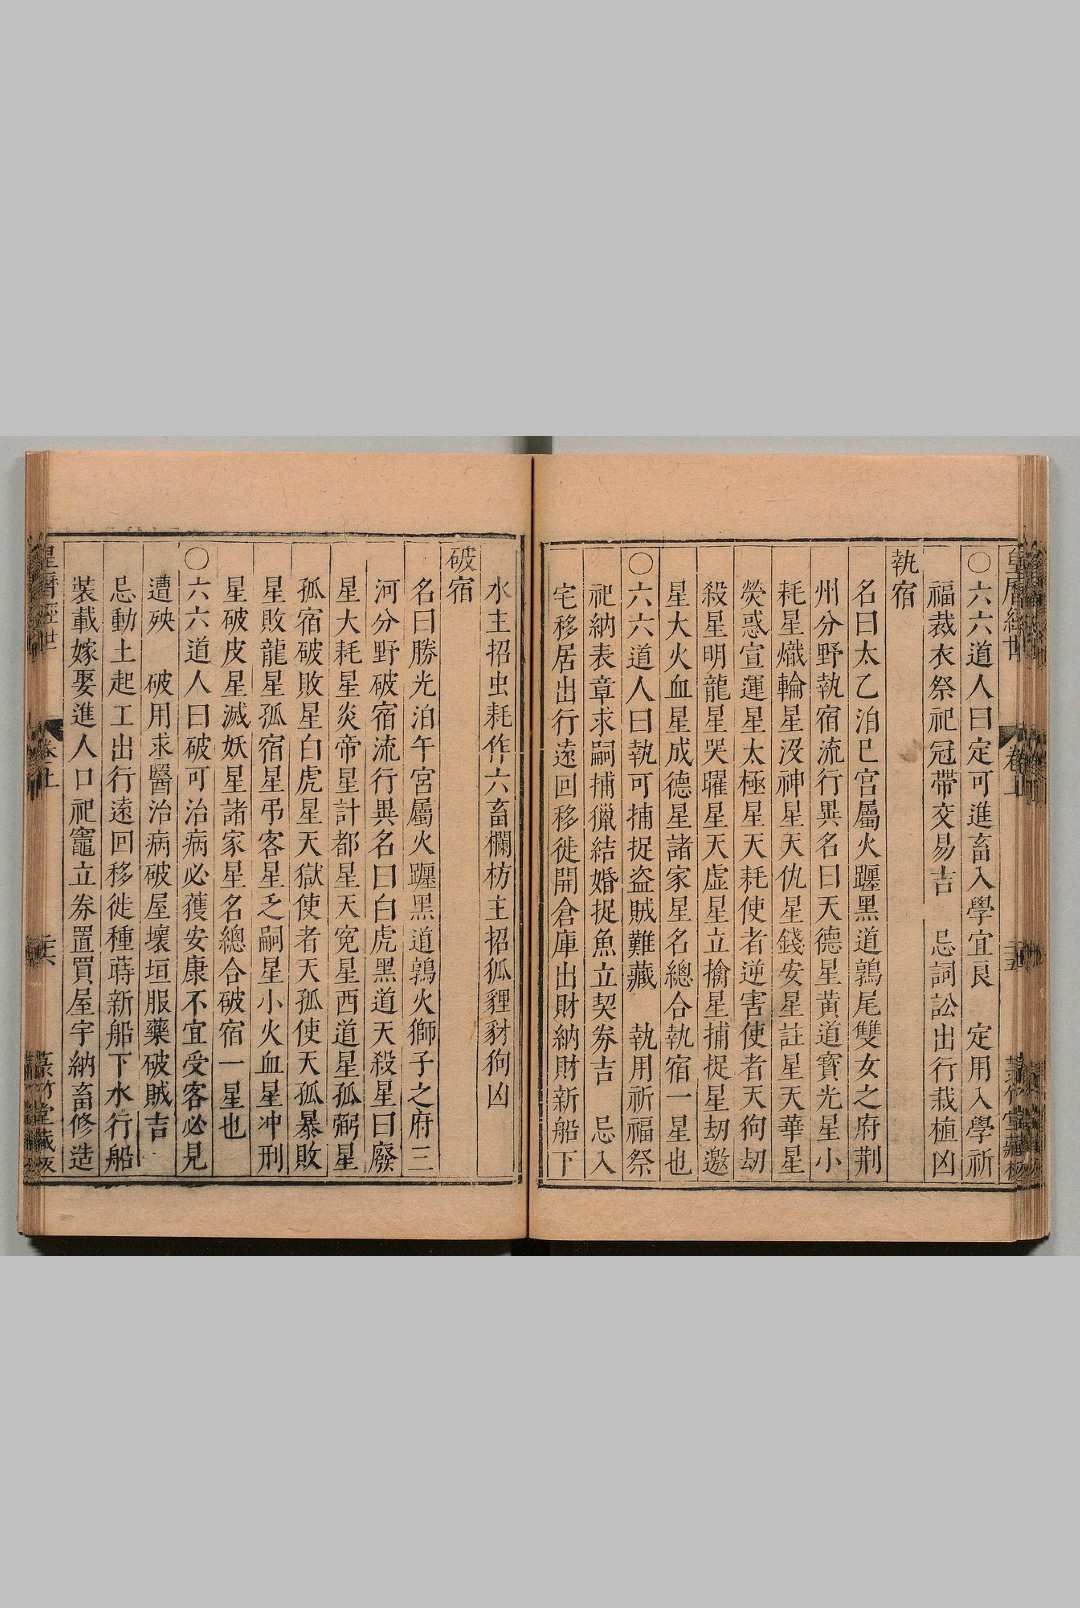 〇六六道人曰定可進畜入學宜良　定用入學祈
福裁衣祭祀冠帶交易吉　忌詞訟出行栽植凶
執宿
名曰太乙泊巳宮屬火躔黑道鶉尾雙女之府荆
州分野執宿流行異名曰天德星黃道寳光星小
耗星熾輪星沒神星天仇星錢安星註星天華星
熒惑宣運星太極星天耗使者逆害使者天狗刧
殺星明龍星哭躍星天虛星立擒星捕捉星刧邀
星大火血星成德星諸家星名總合執宿一星也
〇六六道人曰執可捕捉盜賊難藏　執用祈福祭
祀納表章求嗣捕獵結婚捉魚立契券吉　忌入
宅移居出行遠回移徙開倉庫出財納財新船下
水主招虫耗作六畜欄枋主招狐貍豺狗凶
破宿
名曰勝光泊午宮屬火躔黑道鶉火獅子之府三
河分野破宿流行異名曰白虎黑道天殺星曰廢
星大耗星炎帝星計都星天寃星西道星孤弼星
孤宿破敗星白虎星天獄使者天孤使天孤暴敗
星敗龍星孤宿星弔客星乏嗣星小火血星冲刑
星破皮星滅妖星諸家星名總合破宿一星也
〇六六道人曰破可治病必獲安康不宜受客必見
遭殃　破用求醫治病破屋壞垣服藥破賊吉
忌動土起工出行遠回移徙種蒔新船下水行船
裝載嫁娶進人口祀竈立券置買屋宇納畜修造